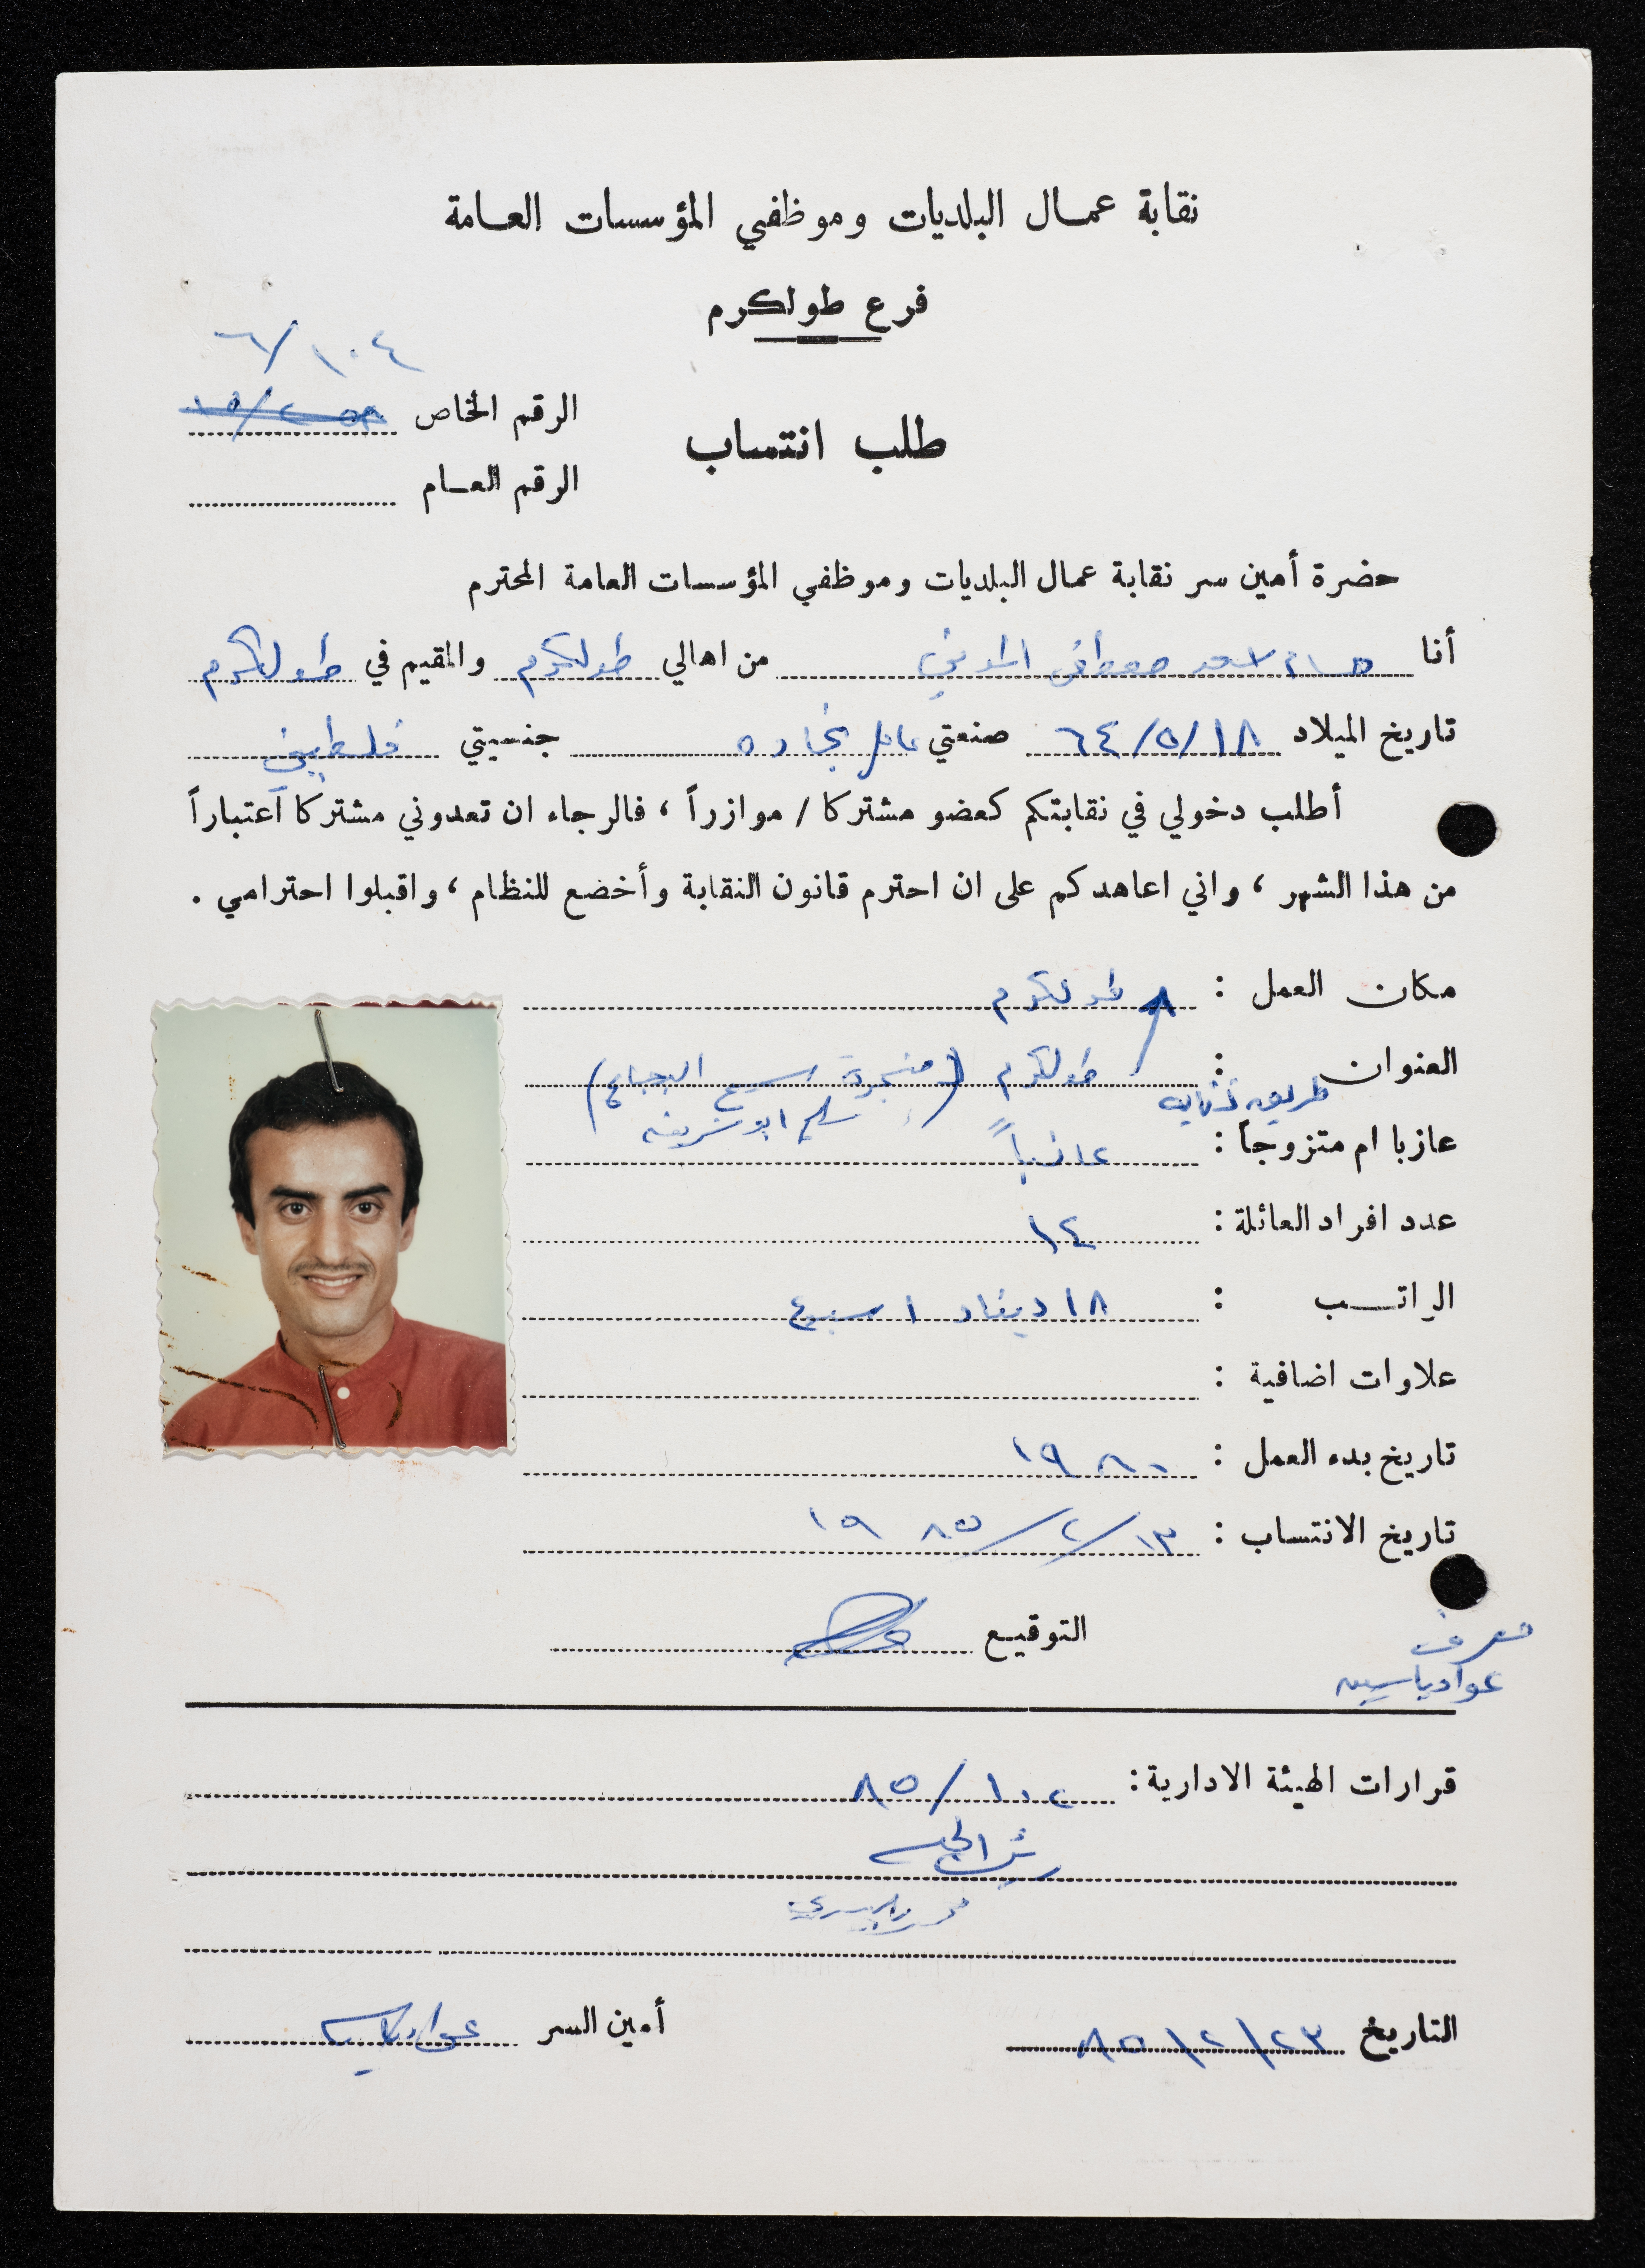 نقابة عمال البلديات وموظفي المؤسسات العامة
فرع طولكرم
٦/١٠٤
الرقم الخاص
طلب انتساب
الرقم العام
حضرة أمين سر نقابة عمال البلديات وموظفي المؤسسات العامة المحترم
أنا مصطفى من اهالي طولكرم والمقيم في طولكرم
تاريخ الميلاد ٦٤/٥/١٨ صنعتي عامل نجاره جنسيتي فلسطيني
أطلب دخولي في نقابتكم كعضو مشتركا / موازراً ، فالرجاء ان تعدوني مشتركا اعتباراً
من هذا الشهر ، واني اعاهدكم على ان احترم قانون النقابة وأخضع للنظام ، واقبلوا احترامي .
مكان العمل : طولكرم
العنوان : طولكرم (منجرة
طريق
عازبا ام متزوجاً : عازباً
عدد افراد العائلة : ١٤
الراتب : ١٨ دينار اسبوع
علاوات اضافية :
تاريخ بدء العمل : ١٩٨٠
تاريخ الانتساب : ١٣/٢/٨٥ ١٩
التوقيع
عواد ياسين
قرارات الهيئة الادارية : ٨٥/١٠٢
التاريخ ٨٥/٢/٢٣ أمين السر عواد ياسين